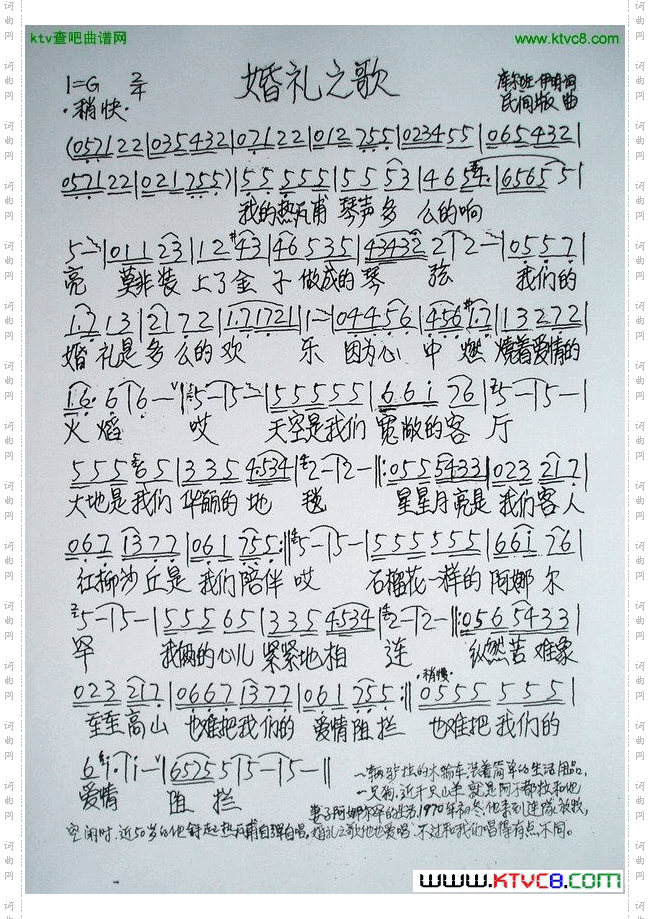 ktv查吧曲谱网
www.ktvc8.com
1=G 2/4
婚礼之歌
库尔班·伊明 词
·稍快·
民间版 曲
(0571 22|035432|071 22|012 755|0234 55|065432|
0571 22|021 755)|55 555|55 53|46 54·|6565 5|
我的热瓦甫 琴声多 么的响
5-|011 23|12 #43|46 535|43432 2|2-|055 7|
亮 莫非装 上了金 子 做成的琴 弦 我们的
1·7 13|21 72|1·71721|1-|044 56|456 #1·7|13272|
婚礼是多么的欢 乐 因为心 中 燃 烧着爱情的
1·6· 6|6-|5-|5-|55555|66i 76|5-|5-|
火焰 哎 天空是我们 宽敞的客 厅
555 65|335 4·534|2-|2-‖:055 5433|023 217|
大地是我们 华丽的地 毯 星星月亮是 我们客人
067 1377|061 755:‖5-|5-|555 555|66i 76|
红柳沙丘是 我们陪伴 哎 石榴花一样的 阿娜尔
5-|5-|555 65|335 4534|2-|2-‖:056 5433|
罕 我俩的心儿 紧紧地相 连 纵然苦难象
·稍慢·
023 217|0667 1377|061 755:‖0555 555|
座座高山 也难把我们的 爱情阻拦 也难把我们的
6 i·|i-|6525 5|5-|5-‖
爱情 阻 拦
一辆驴拉的木轮车,装着简单的生活用品,
一只狗,近千只山羊 就是阿不都拉和他
妻子阿娜尔罕的生活,1970年初冬,他来到连队放牧,
空闲时,近50岁的他弹起热瓦甫自弹自唱,婚礼之歌他也爱唱,不过和我们唱得有点不同。
www.KTVC8.com
词曲网